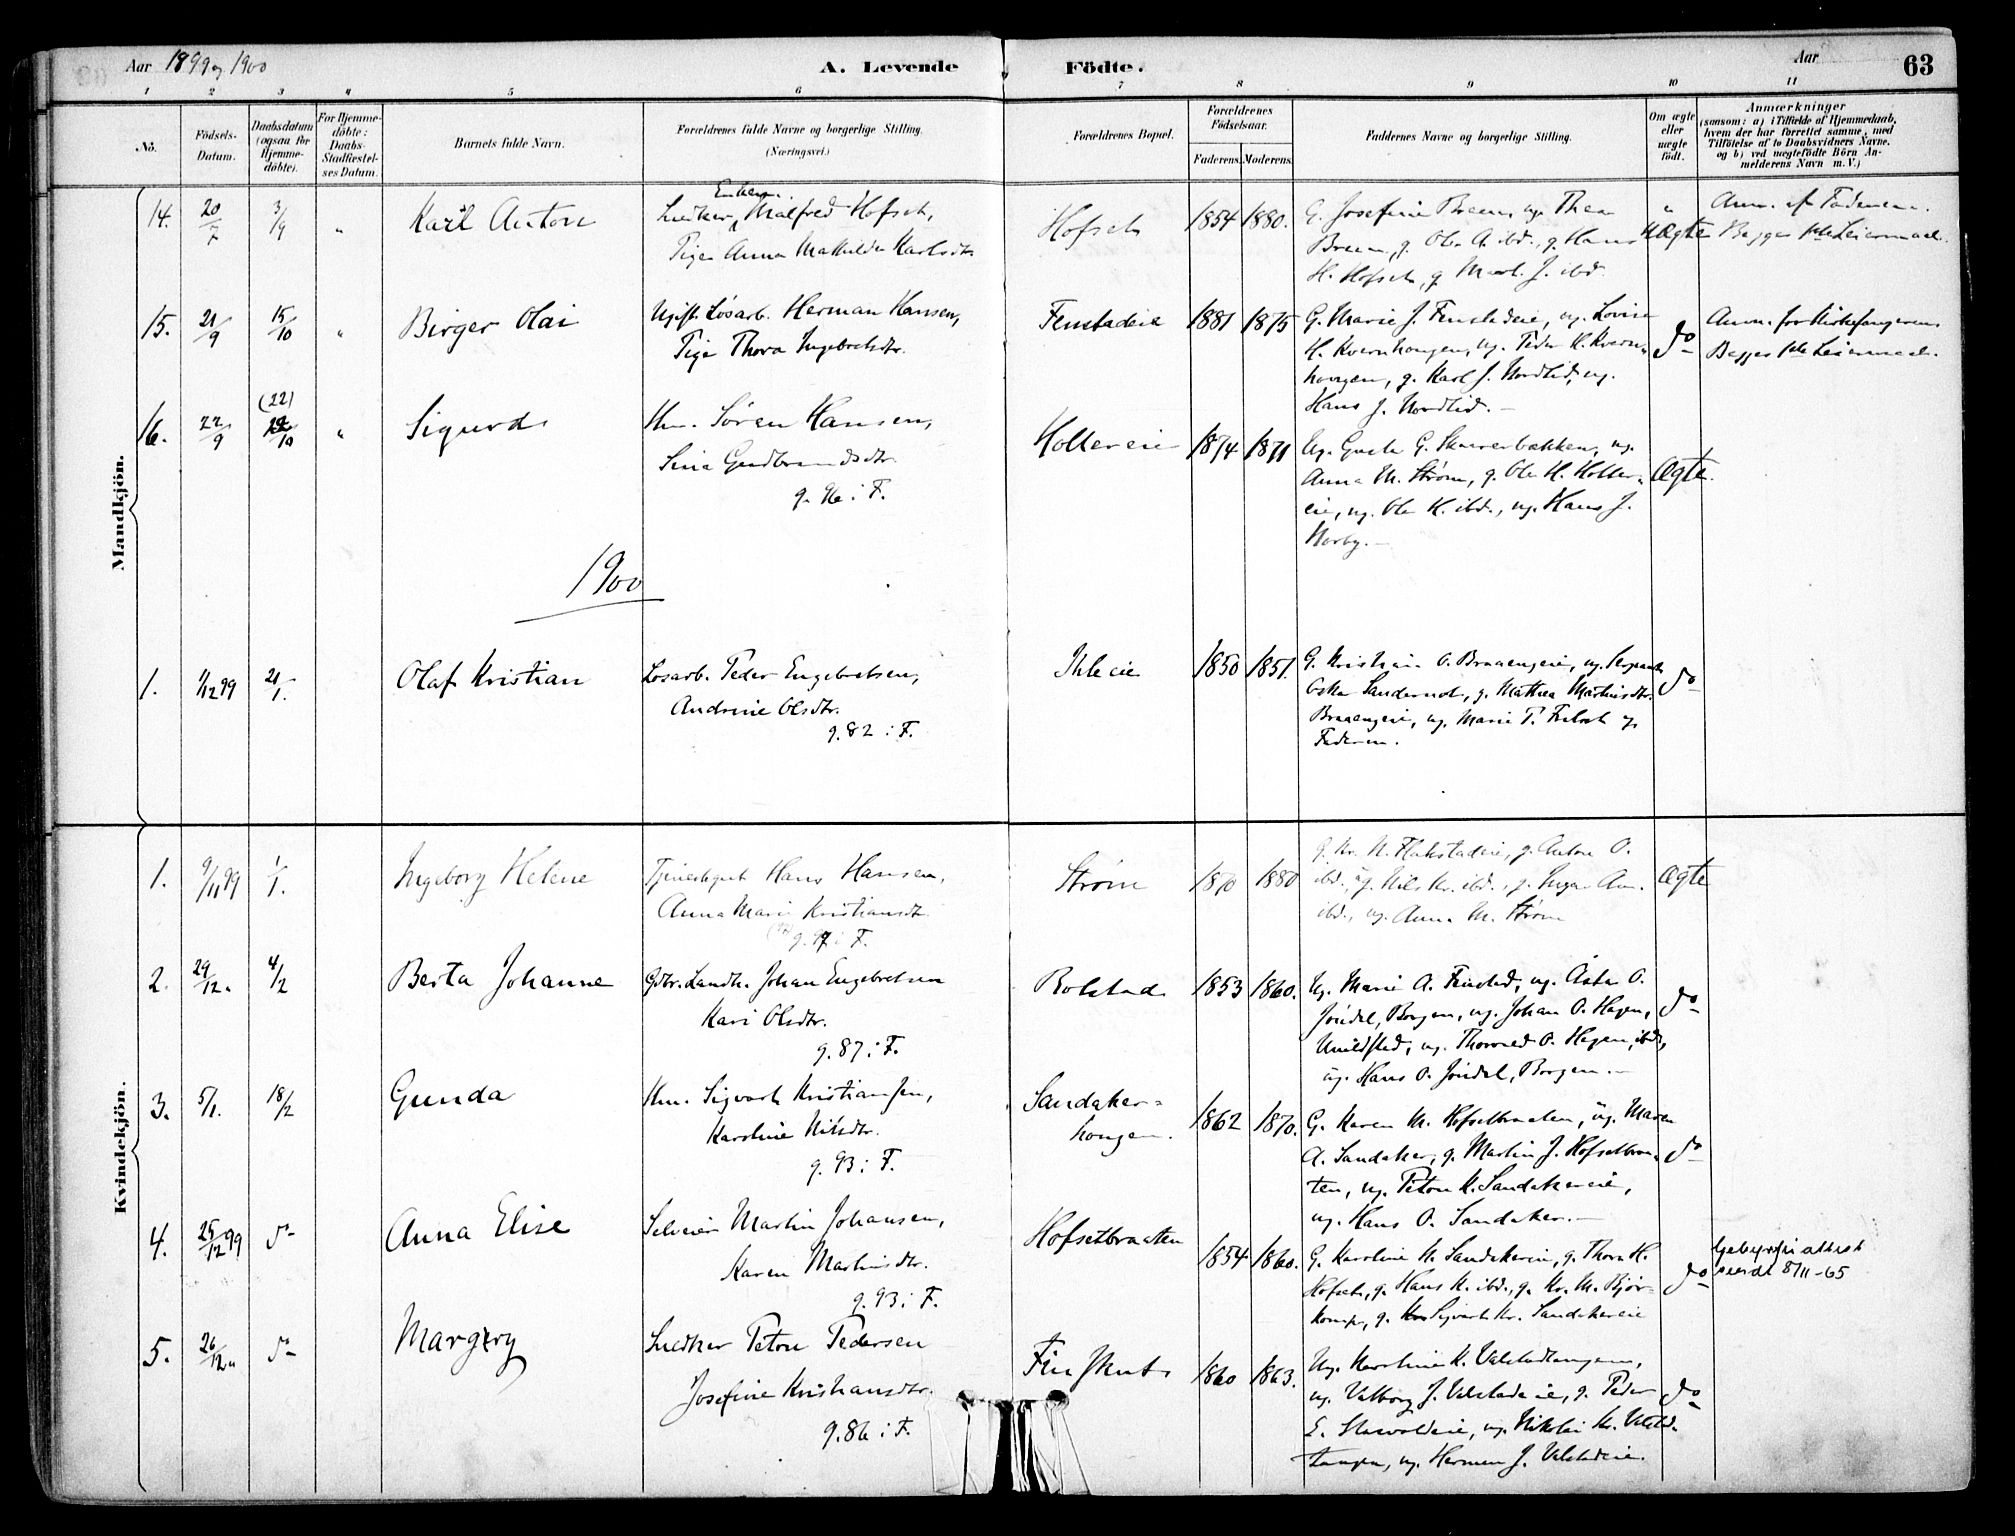 Aar 1899 og 1900
A. Levende Födte.
Aar
63
1 2 3 4 5 6 7 8 9 10 11
No.
Födsels-Datum.
Daabsdatum (ogsaa for Hjemme-döbte).
For Hjemme-döbte: Daabs-Stadfæstel-ses Datum.
Barnets fulde Navn.
Forældrenes fulde Navne og borgerlige Stilling.
(Næringsvei.)
Forældrenes Bopæl.
Forældrenes Födselsaar.
Faderens. Moderens.
Faddernes Navne og borgerlige Stilling.
Om ægte eller uægte födt.
Anmærkninger
(saasom: a) i Tilfælde af Hjemmedaab, hvem der har forrettet samme, med Tilföielse af to Daabsvidners Navne, og b) ved uægtefödte Börn An-melderens Navn m. V.)
Mandkjön.
14. 20/7 3/9 " Karl Anton
Enkem.
Snedker, Malfred Hofset,
Pige Anna Mathilde Karlsdtr.
Hofseth 1854 1880.
G. Josefine Breen, ug. Thea
Breen, g. Ole A. ibd., g. Hans
H. Hofseth, g. Mart. J. ibd.
" Uægte
Anm. af Faderen.
Begges 1ste Leiermaal.
15. 21/9 15/10 " Birger Olai
Ugift Løsarb. Herman Hansen,
Pige Thora Ingebretsdtr.
Finstadeie 1881 1875
G. Marie J. Finstadeie, ug. Lovise
H. Kvernhougen, ug. Peder K. Kvern-
hougen, g. Karl J. Nordlid, ug.
Hans J. Nordlid. -
do
Anm. for Kirkesangeren
Begges 1ste Leiermaal.
16. 22/9 (22) /10 " Sigurd
Hm. Søren Hansen,
Sina Gudbrandsdtr.
g. 96 i F.
Holtereie 1874 1871
G. Skarerbakken, ug.
Anna M. Strøm, g. Ole H. Holter-
eie, ug. Ole K. ibd., ug. Hans J.
Norby. -
Ægte.
1900
1. 1/12 99 21/1. Olaf Kristian
Løsarb. Peder Engebretsen,
Andrine Olsdtr.
g. 82 i F.
Ihleeie 1850 1851.
G. Kristian O. Braaengeie, ug. Sergeant
Oskar, g. Mathea Martinsdtr.
Braaengeie, ug. Marie P. og
Faderen.
do
Kvindekjön.
1. 9/11 99 1/1. Ingeborg Helene
Hans Hansen,
Anna Marie Kristiansdtr.
g. 97 i F.
Strøm 1870 1880
g. Kr. N. Flakstadeie, g. Anton O.
ibd., ug. Nils Kr. ibd., g. Inger An.
ibd., ug. Anna M. Strøm
Ægte
2. 29/12. 4/2 Berta Johanne
Gdbr. Landh. Johan Engebretsen
Kari Olsdtr.
g. 87 i F.
Bolstad 1853 1860.
Ug. Marie A. Finstad, ug. Åsta O.
Jøndal, Borgen, ug. Johan O. Hagen,
ug. Thorvald O. Hagen, ibd.,
ug. Hans O. Jøndal, Borgen. -
do
3. 5/1. 18/2 Gunda
Hm. Sigvart Kristiansen,
Karoline Nilsdtr.
g. 93 i F.
Sandaker-
hougen. 1862 1870.
G. Karen M. Hofsetbraaten, ug. Maren
A. Sandaker, g. Martin J. Hofsetbraa-
ten, ug. Peton K. Sandakereie,
ug. Hans O. Sandaker. -
do
4. 25/12 99 do Anna Elise
Selveier Martin Johansen,
Karen Martinsdtr.
g. 93 i F.
Hofsetbraaten 1854 1860.
G. Karoline N. Sandakereie, g. Thorn H.
Hofseth, g. Hans K. ibd., g. Kr. M. Bjør-
, g. Sigvart Kr. Sandakereie
do
Gebyrfri attest
8/11-65
5. 26/12 do Margery
Snedker Peton Pedersen
Josefine Kristiansdtr.
g. 86 i F.
1860 1863.
Ug. Karoline K. Valstadtangen,
ug. Valborg J. Valstadeie, g. Peder
E., ug. Nikolai Kr. Valstad-
tangen, ug. Herman J. Valstadeie.
do